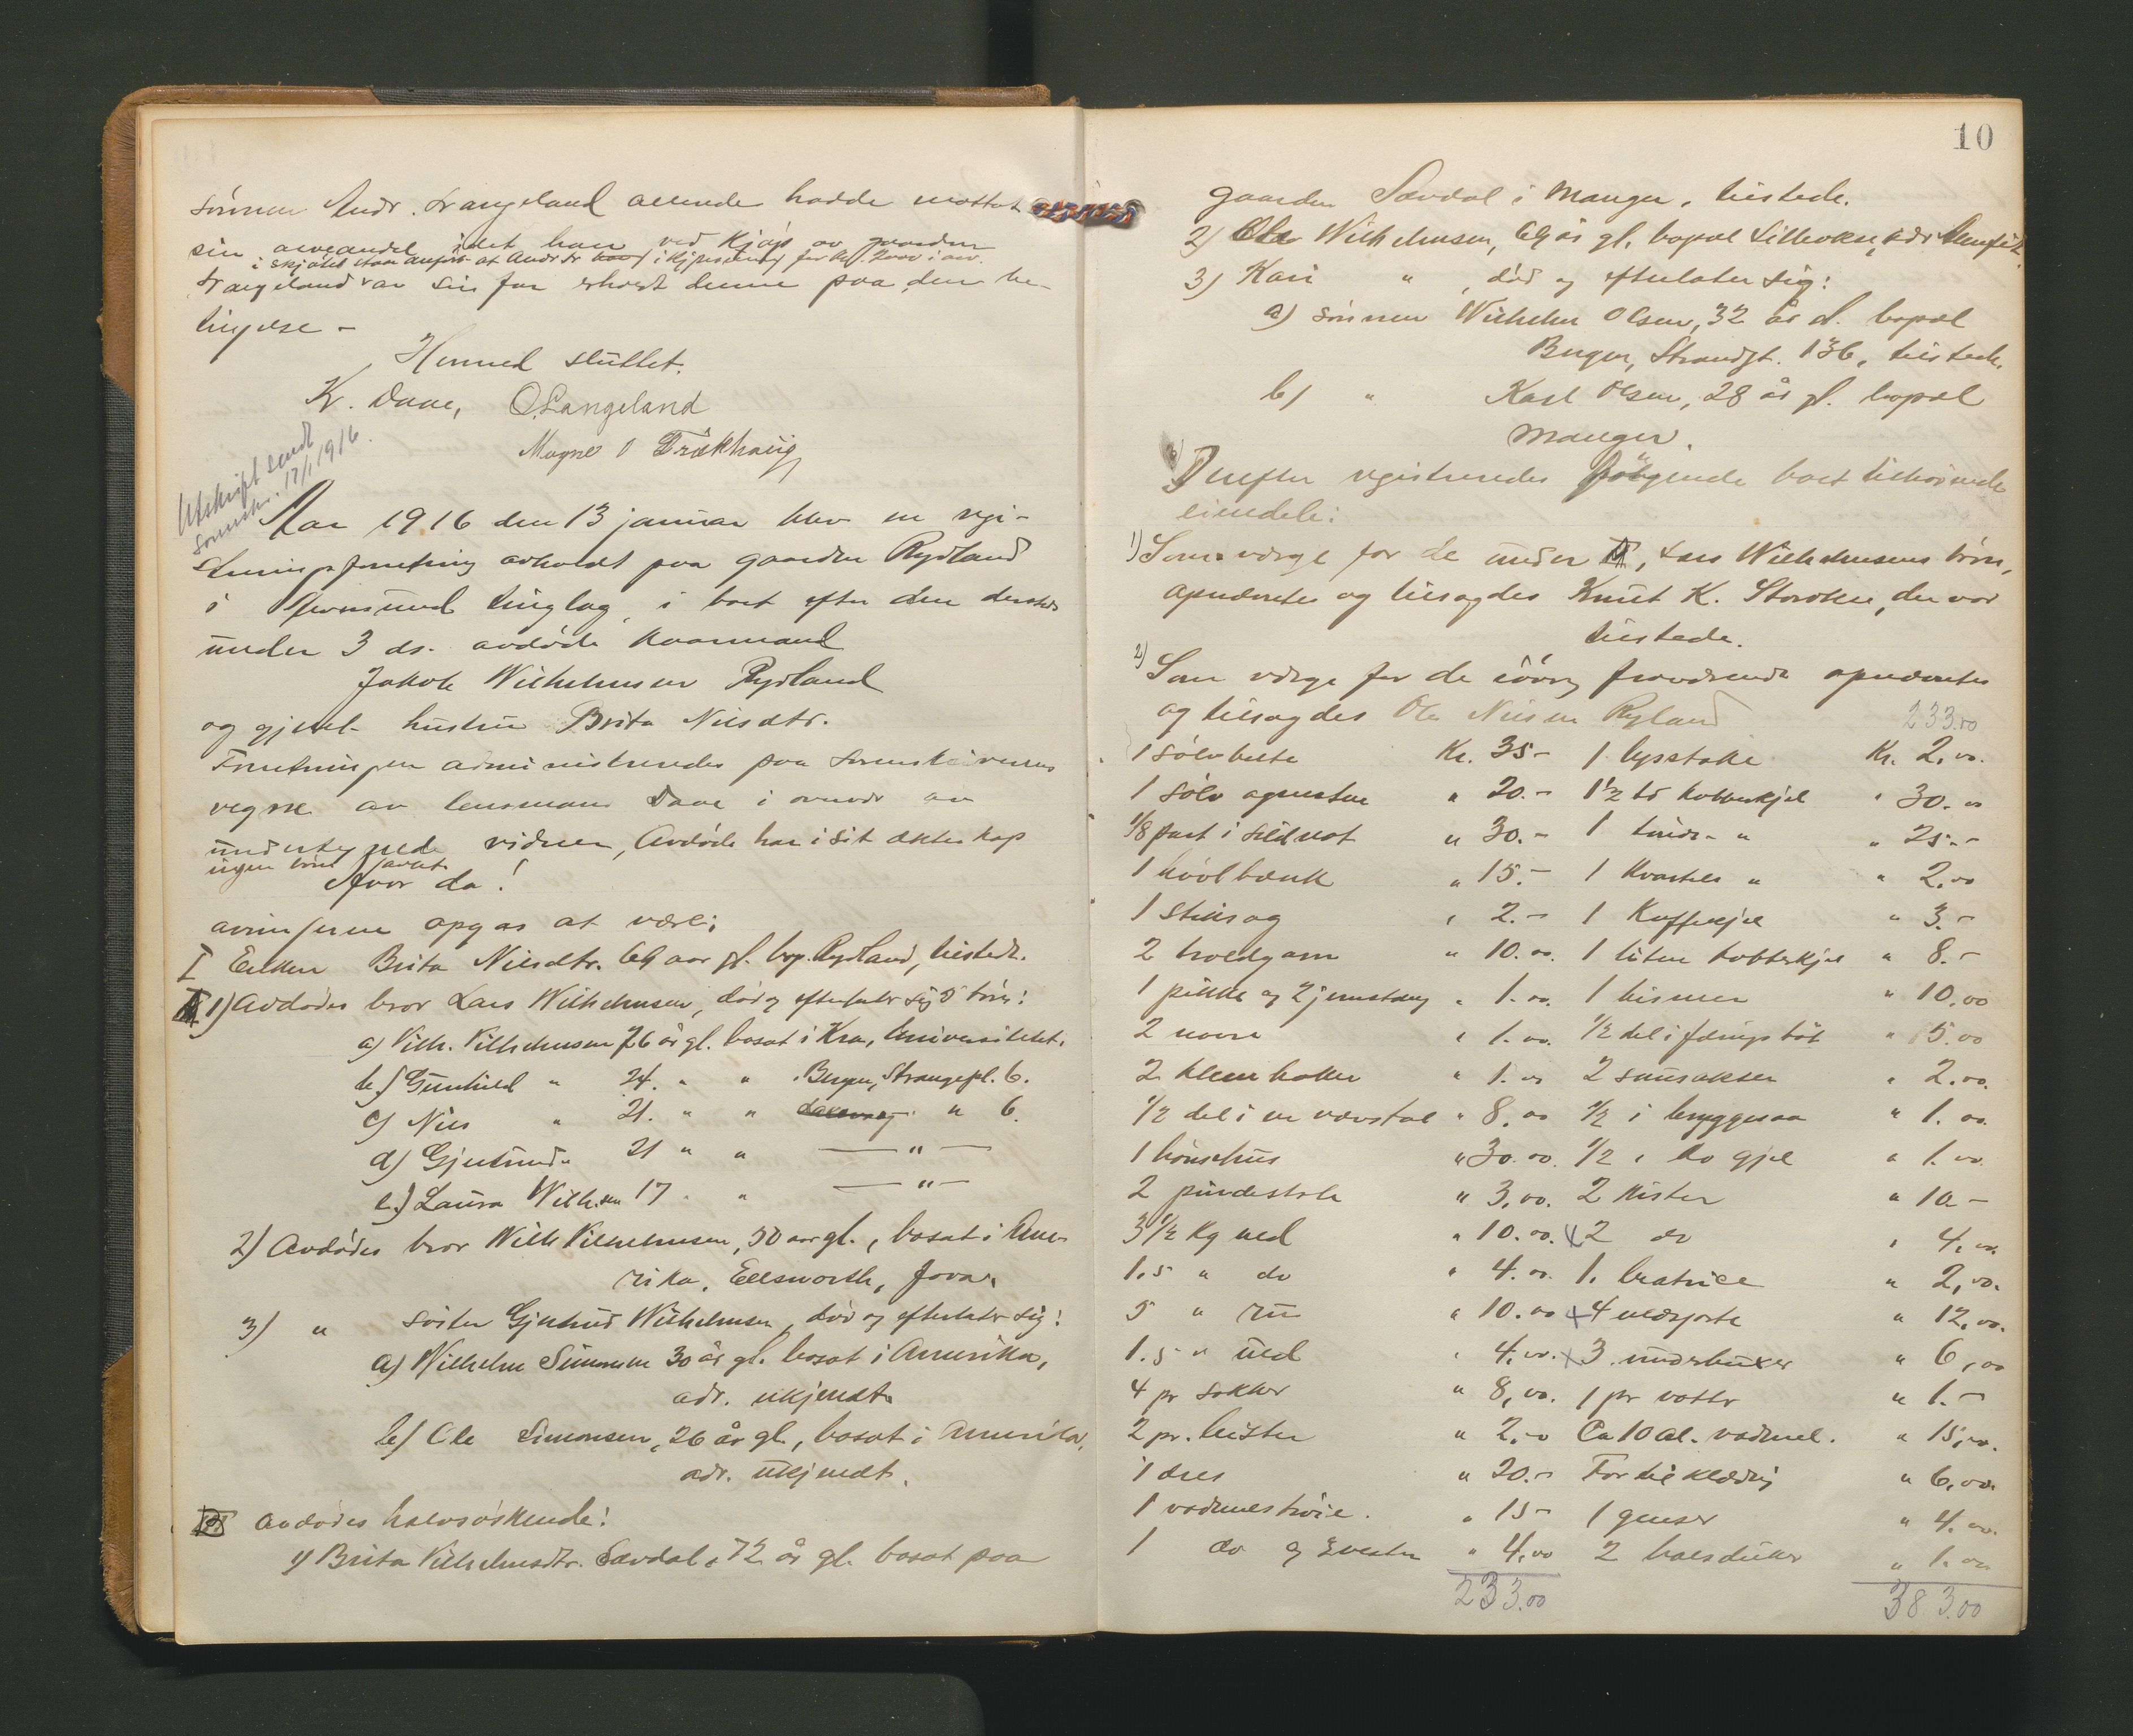 sönnen Andr. Langeland allerede hadde mottat
sin arveandel idet han ved kjöp av gaarden
i skjötet staar anfört at Andr. fr i kjöpesum for kr. 2000 i arv.
Langeland av sin far erholdt denne paa den be-
tingelse -
Hermed sluttet.
Kr. Daae, O. Langeland
Magne O Trækhaug
Utskrift sendt
sorenskr. 17/1 1916.
Aar 1916 den 13 januar blev en regi-
streringsforretning avholdt paa gaarden Rydland
i tinglag, i boet efter den dersteds
under 3 ds. avdöde kaarmand
Jakob Wilhelmsen Rydland
og gjenl. hustru Brita Nilsdtr.
Forretningen administreredes paa sorenskriverens
vegne av lensmand Daae i overvær av
undertegnede vidner, Avdöde har i sit ekteskap
ingen börn avlet
Hvor da!
arvingerne opgas at være:
I Enken Brita Nilsdtr. 69 aar gl. bop. Rydland, tilstede.
II 1) Avdödes bror Lars Wilhelmsen, död og efterlater sig 5 börn:
a) Vilh. Vilhelmsen 26 år gl. bosat i Kra, Universitetet.
b) Gunhild " 24. " " Bergen, Strangepl. 6.
c) Nils " 21. " " " 6.
d) Gjertrud " 21 " " — " —
e) Laura Wilh.sen 17 " " — " —
2) Avdödes bror Wilh Vilhelmsen, 50 aar gl., bosat i Ame-
rika, Ellsworth, Jova.
3) " söster Gjertrud Wilhelmsen, död og efterlater sig:
a) Wilhelm Simonsen 30 år gl. bosat i Amerika,
adr. ukjendt.
b) Ole Simonsen, 26 år gl., bosat i Amerika,
adr. ukjendt.
III Avdödes halvsöskende:
1) Brita Vilhelmsdtr. Sævdal, 72 år gl. bosat paa
10
gaarden Sævdal i Manger, tilstede.
2) Ole Wilhelmsen, 69 år gl. bopæl
3) Kari " , död og efterlater sig:
a) sönnen Wilhelm Olsen, 32 år gl. bopæl
Bergen, Strandgt. 136, tilstede.
b) " Karl Olsen, 28 år gl. bopæl
Manger.
Derefter registreredes fölgende boet tilhörende
eiendele:
1) Som verge for de under II, Lars Wilhelmsens börn,
opnævntes og tilsagdes Knut K. Storoken, der var
tilstede.
2) Som verge for de övrig fraværende opnævntes
og tilsagdes Ole Nilsen Rydland 233.00
1 sölvbelte Kr. 35- 1 lysstake Kr. 2.00.
1 sölv agnustue " 20.- 1 1/2 td kobberkjel " 30.00
1/8 part i sildnot " 30.- 1 tönde- " " 25.-
1 hövlbænk " 15.- 1 kvartels " " 2.00
1 stiksag " 2.- 1 Kaffekjel " 3.-
2 troldgarn " 10.00. 1 liten kobberkjel " 8.-
1 pikke og 2 jernstang " 1.00. 1 bismer " 10.00
2 navre " 1.00. 1/2 del i færingsbåt " 5.00
2 kleer " 1.00 2 sausakser " 2.00.
1/2 del i en vævstol " 8.00 1/2 i bryggesaa " 1.00.
1 hönsehus " 30.00. 1/2 " do gjel " 1.00.
2 pindestole " 3.00. 2 kister " 10-
3 1/2 kg uld " 10.00. x 2 do " 4.00.
1.5 " do " 4.00. 1 " 2.00.
5 " ru " 10.00 x 4 uldskjorte " 12.00.
1.5 " uld " 4.00. x 3 underbukser " 6.00
4 pr sokker " 8.00. 1 pr votter " 1.-
2 pr. leister " 2.00 Ca 10 al. vadmel. " 15.00.
1 dres " 20.- For til klædning " 6.00.
1 vadmelströie. " 15- 1 genser " 4.00.
1 do og 2 vester " 4.00 2 halsduker " 1.00
233.00 383.00